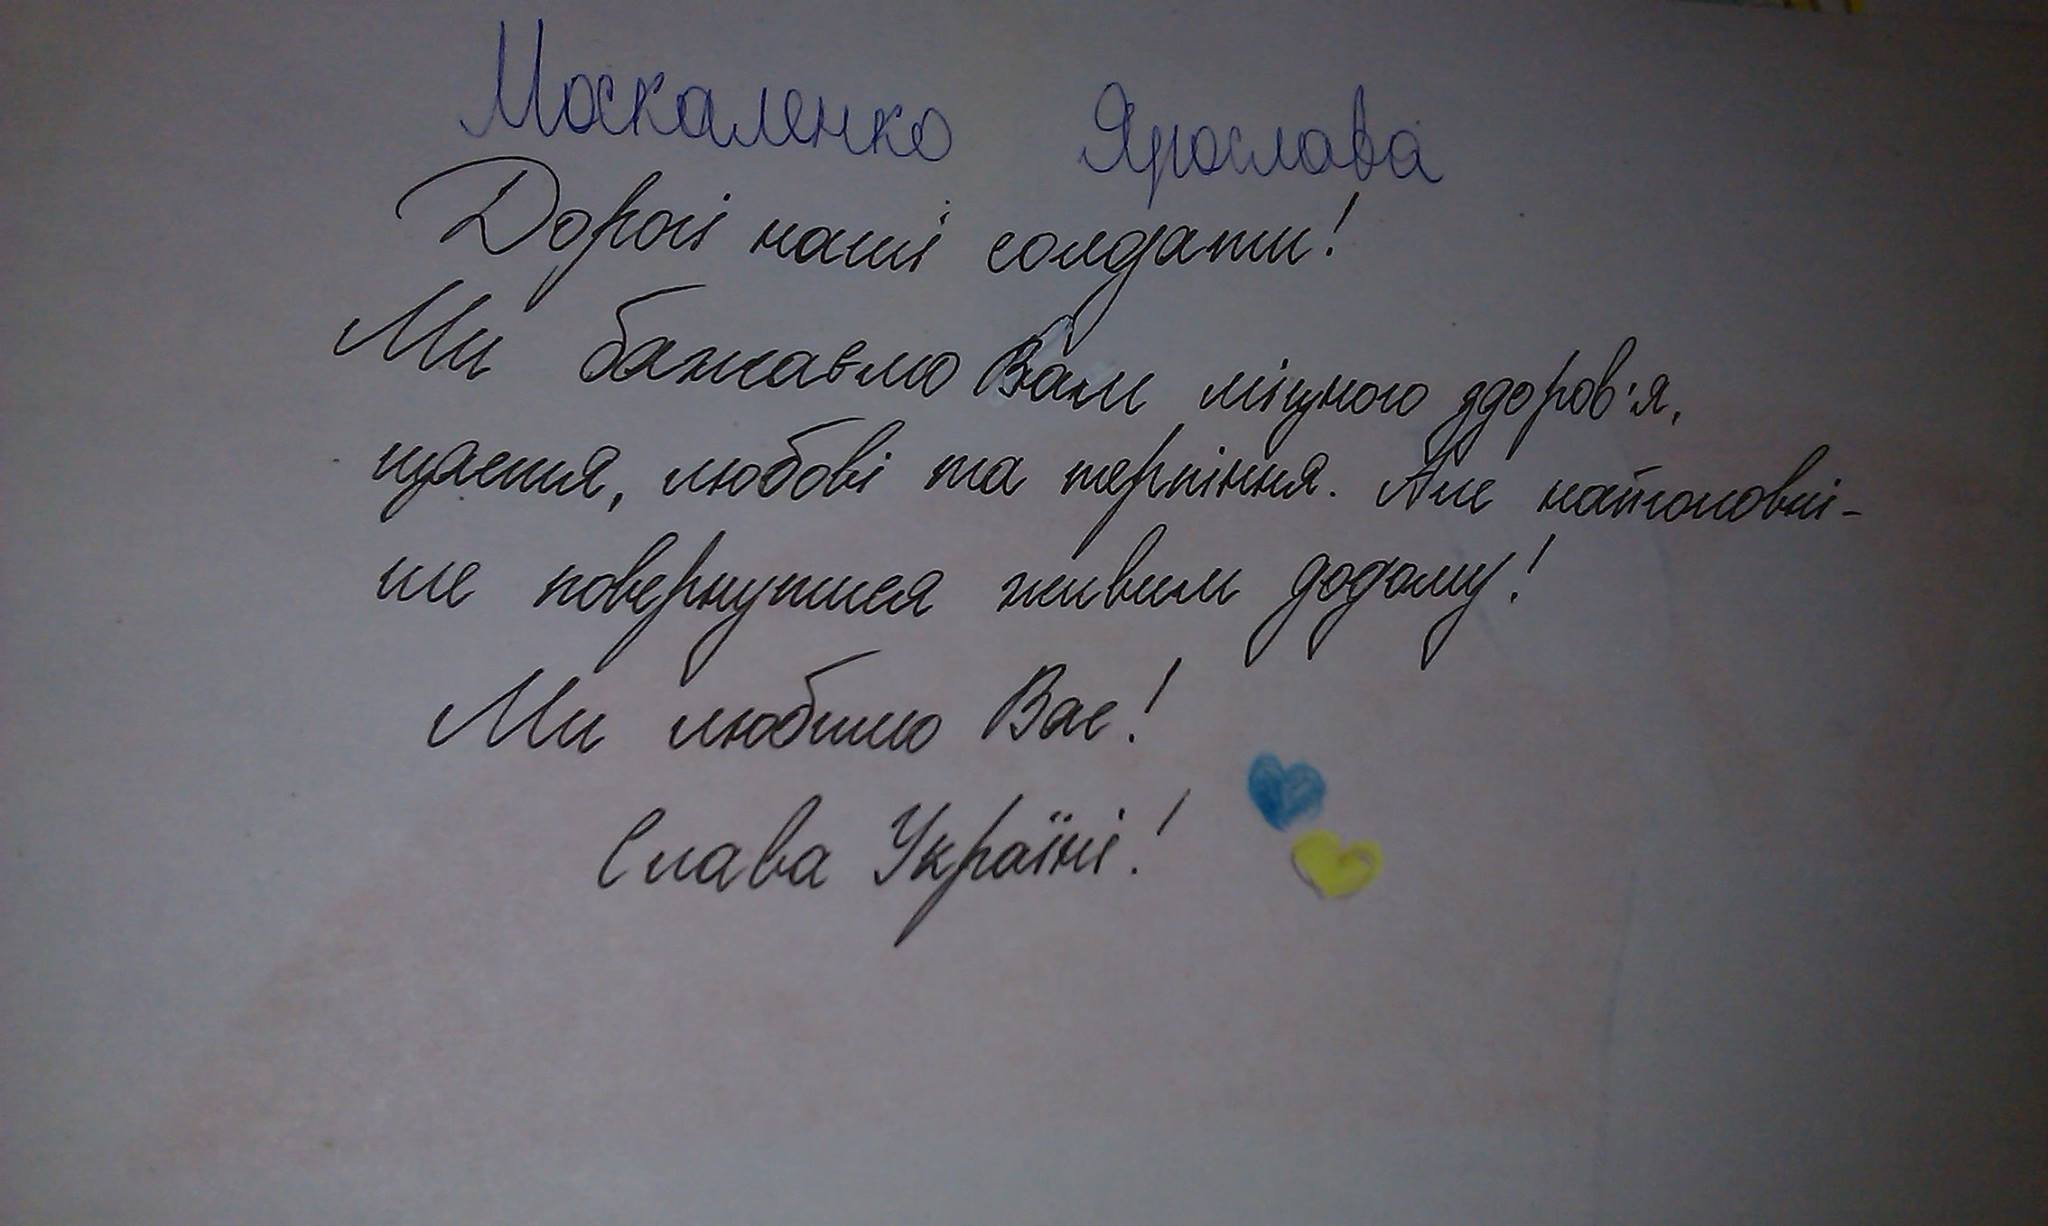 Москаленко Ярослава
Дорогі наші солдати!
Ми бажаємо Вам міцного здоров'я,
щастя, любові та терпіння. Але найголовні-
ше повернутися живим додому!
Ми любимо Вас!
Слава Україні!